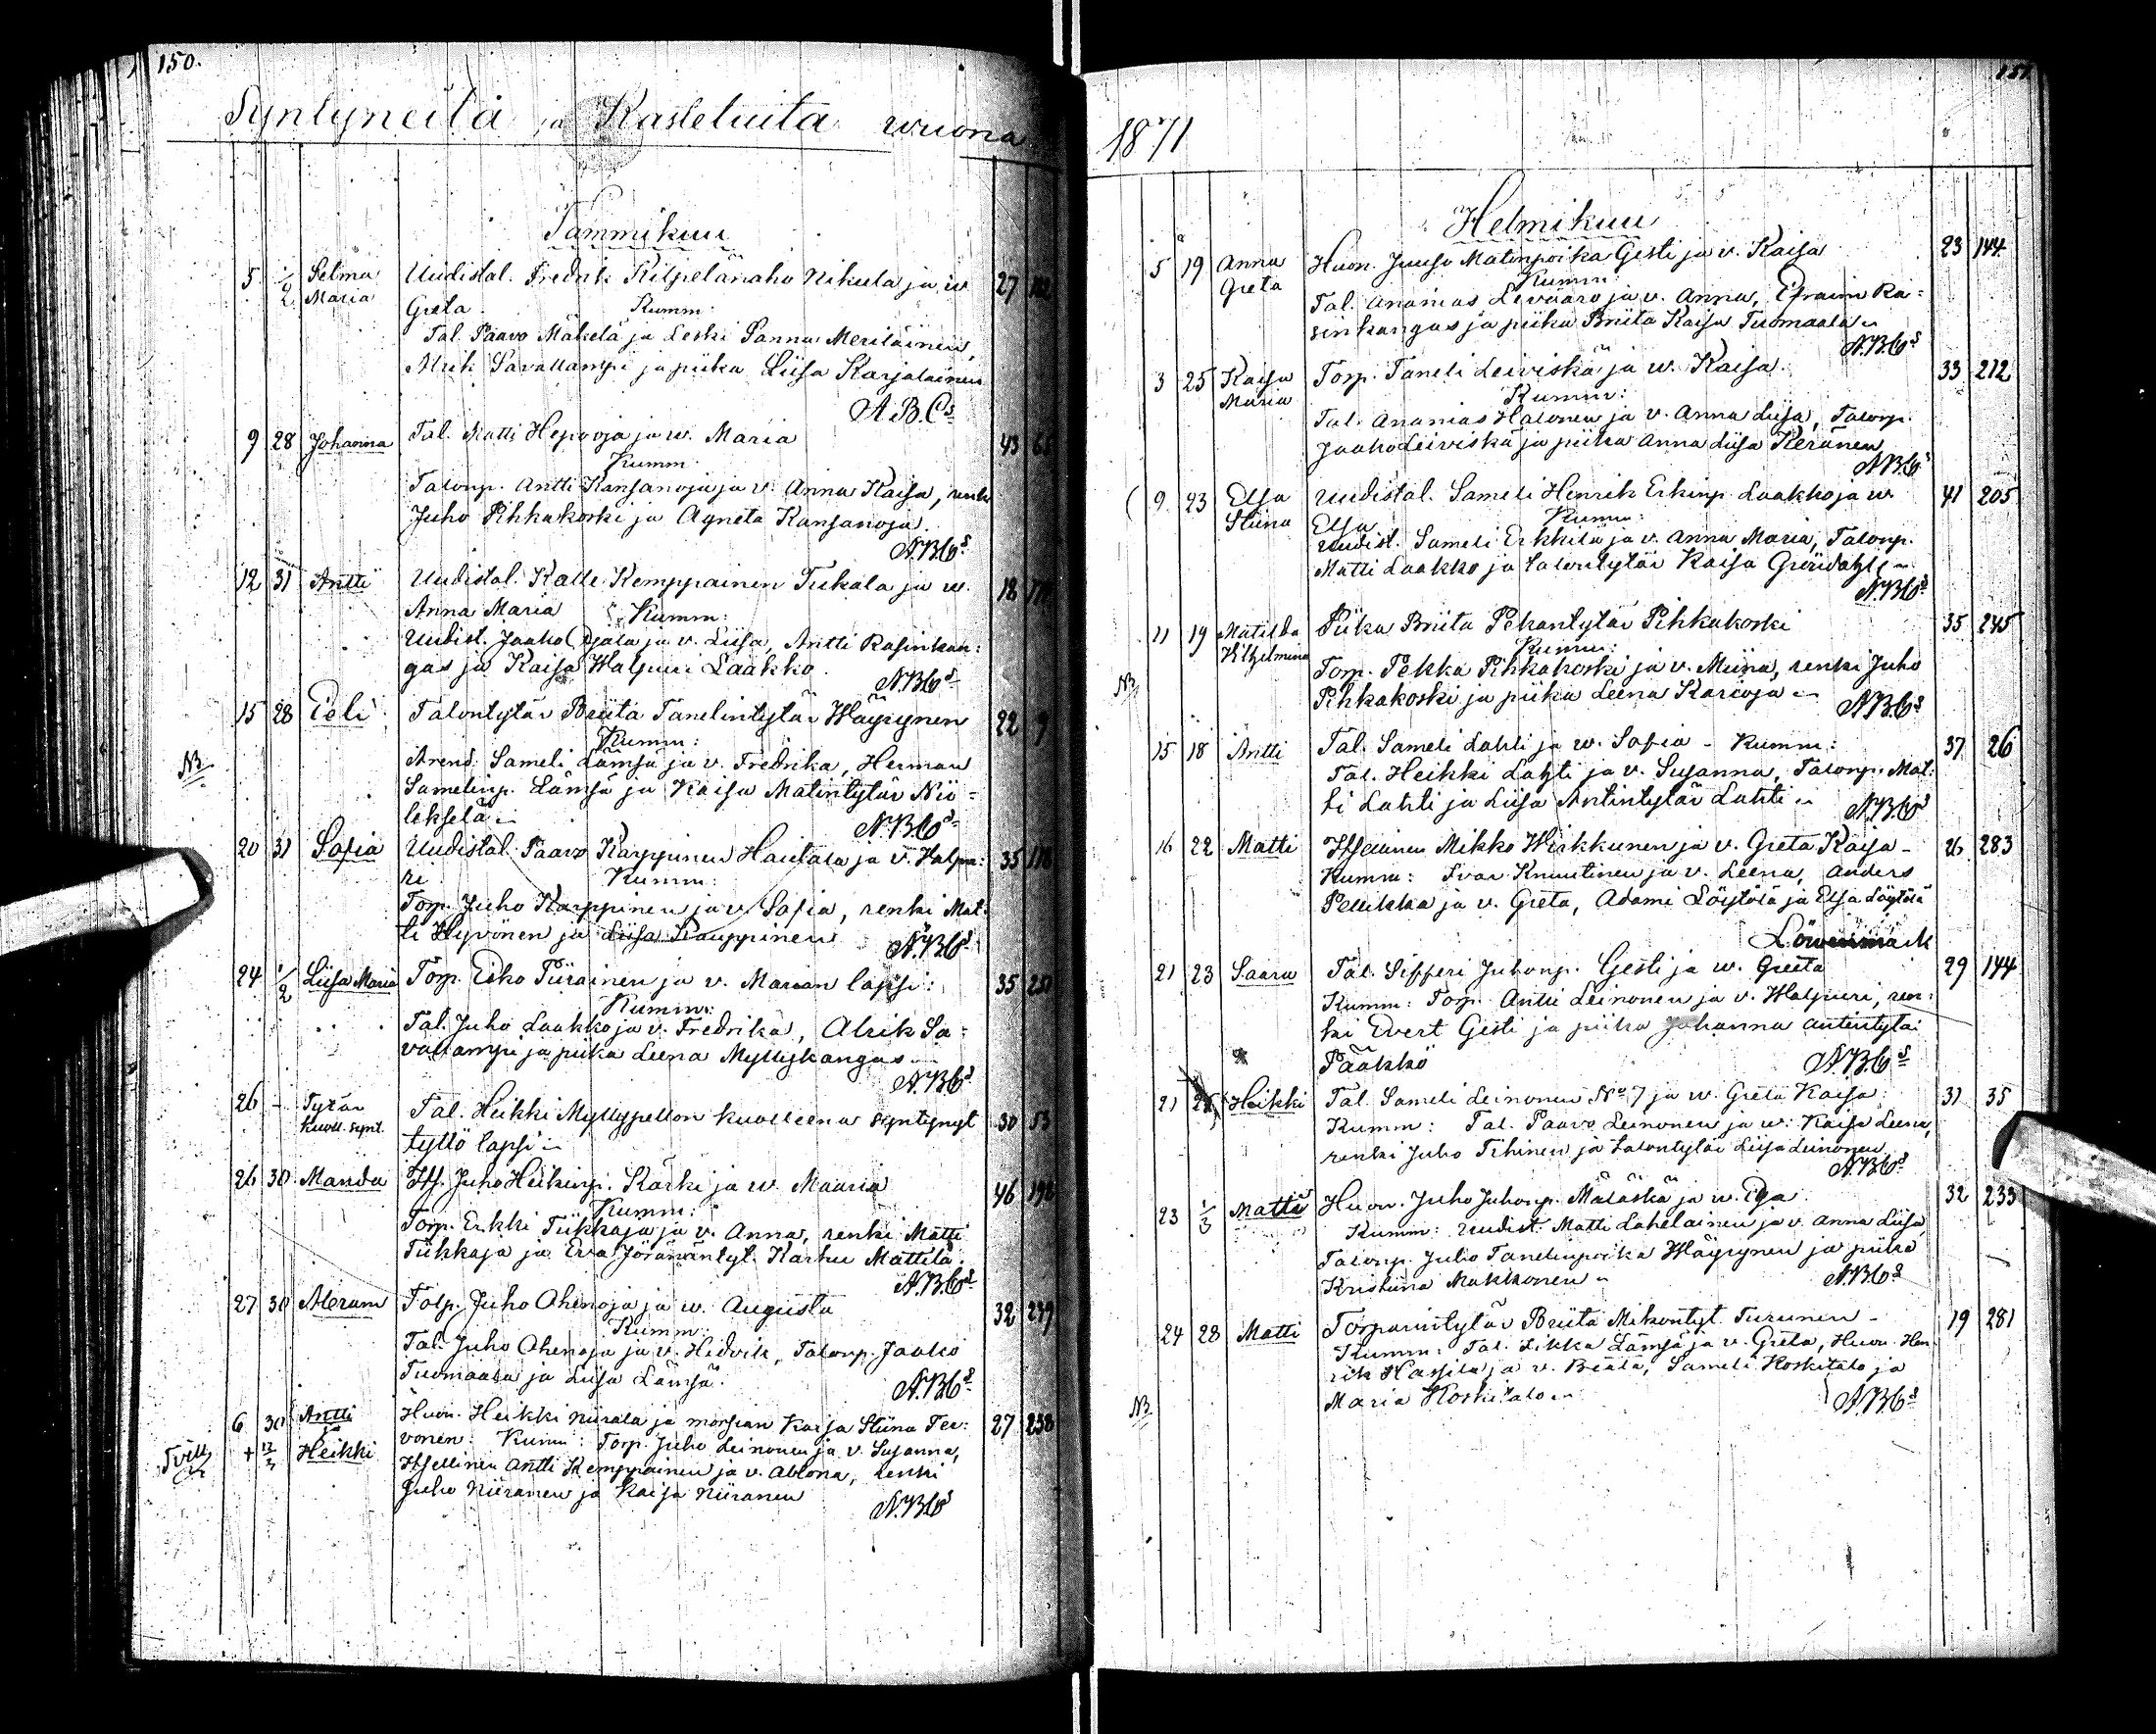 150.
Syntyneitä ja Kasteluita wuona
Tammikuu
5 1/2 Selma Maria Uudistal. Fredrik Kilpelänaho Nikula ja w. 27
Greta. Kumm:
Tal. Paavo Mäkelä ja Leski Sanna Meriläinen,
Alrik Savallampi ja piika Liisa Karjalainen
A.B.Cs
9 28 Johanna Tal. Matti Hepooja ja w. Maria 43
Kumm:
Talonp. Antti Kansanoja ja v. Anna Kaisa, renk
Juho Pihkakoski ja Agneta Kansanoja.
A.B.Cs
12 31 Antti Uudistal. Kalle Kemppainen Tukala ja w. 18
Anna Maria Kumm:
Uudist. Jaako Ojala ja v. Liisa, Antti Rasinkan:
gas ja Kaisa Walpuri Laakko.
A.B.Cs
15 28 Eeli Talontytär Briita Tanelintytär Häyrynen 22 9
Kumm:
NB Arend. Sameli Lämsä ja v. Fredrika, Herman
Samelinp. Lämsä ja Kaisa Matintytär Nii-
lekselä
A.B.Cs
20 31 Sofia Uudistal. Paavo Karppinen Hautala ja v. Walpu: 35 118
ri. Kumm:
Torp. Juho Karppinen ja v. Sofia, renki Mat:
ti Hyvönen ja Liisa Kauppinen
A.B.Cs
24 1/2 Liisa Maria Torp. Esko Piirainen ja v. Marian lapsi: 35 251
Kumm:
Tal. Juho Laakko ja v. Fredrika, Alrik Sa:
vallampi ja piika Leena Myllykangas
A.B.Cs
26 - Tytär kuoll. synt. Tal. Heikki Myllypellon kuolleena syntynyt 30 53
tyttö lapsi
26 30 Manda Itsj. Juho Heikinp. Karki ja w. Maaria 46
Kumm:
Torp. Erkki Tiikkaja ja v. Anna, renki Matti
Tiikkaja ja Eva Jöranintyt. Karhu Mattila.
A.B.Cs
27 30 Abram Torp. Juho Ohenoja ja w. Augusta 32 239
Kumm:
Tal. Juho Ohenoja ja v. Hedvik, Talonp. Jaako
Tuomaala ja Liisa Lämsä.
A.B.Cs
6 30 Antti ja Huon. Heikki Niirala ja morsian Kaisa Stiina Ter: 27 238
Tvill + Heikki vonen. Kumm: Torp. Juho Leinonen ja v. Susanna,
Itsellinen Antti Kemppainen ja v. Ablona, renki
Juho Niiranen ja Kaisa Niiranen
A.B.Cs
151
1871
Helmikuu
5 19 Anna Greta Huon. Juuso Matinpoika Gesti ja v. Kaisa 23 144
Kumm:
Tal. Ananias Levaaro ja v. Anna, Efraim Ra:
sinkangas ja piika Briita Kaisa Tuomaala
A.B.Cs
3 25 Kaisa Maria Torp. Taneli Leiviskä ja w. Kaisa 33 212
Kumm:
Tal. Ananias Halonen ja v. Anna Liisa, Talonp.
Jaako Leiviskä ja piika Anna Liisa Keränen
A.B.Cs
9 23 Elsa Stiina Uudistal. Sameli Henrik Erkinp. Laakko ja w. 41 205
Elsa Kumm:
Uudist. Sameli Erkkilä ja v. Anna Maria, Talonp.
Matti Laakko ja talontytär Kaisa Gröndahl
A.B.Cs
11 19 Matilda Vilhelmina Piika Briita Pekantytär Pihkakoski 35 245
Kumm:
NB Torp. Pekka Pihkakoski ja v. Miina, renki Juho
Pihkakoski ja piika Leena Karioja
A.B.Cs
15 18 Antti Tal. Sameli Lahti ja w. Sofia - Kumm: 37 26
Tal. Heikki Lahti ja v. Susanna, Talonp. Mat:
ti Lahti ja Liisa Antintytär Lahti
A.B.Cs
16 22 Matti Itsellinen Mikko Heikkunen ja v. Greta Kaisa - 26 283
Kumm: Ivar Knuutinen ja v. Leena, Anders
Pellikka ja v. Greta, Adami Löytölä ja Elsa Löytölä
Löwenmark
21 23 Saara Tal. Sipperi Juhonp. Gesti ja w. Greeta 29 144
Kumm: Torp. Antti Leinonen ja v. Walpuri, ren:
ki Evert Gesti ja piika Johanna Antintytär
Pääkkö
A.B.Cs
21 25 Heikki Tal. Sameli Leinonen No 7 ja w. Greta Kaisa 31 35
Kumm: Tal. Paavo Leinonen ja w. Kaisa Leena,
renki Juho Tihinen ja talontytär Liisa Leinonen
A.B.Cs
23 1/3 Matti Huon. Juho Juhonp. Määttä ja w. Eva 32 233
Kumm: Uudist. Matti Lahelainen ja v. Anna Liisa,
Talonp. Juho Tanelinpoika Häyrynen ja piika
Kristiina Makkonen
A.B.Cs
24 28 Matti Torparintytär Briita Mikontyt. Turunen - 19 281
Kumm: Tal. Sikka Lämsä ja v. Greta, Huon. Hen:
rik Hassila ja v. Beata, Sameli Koskitalo ja
NB Maria Koskitalo
A.B.Cs